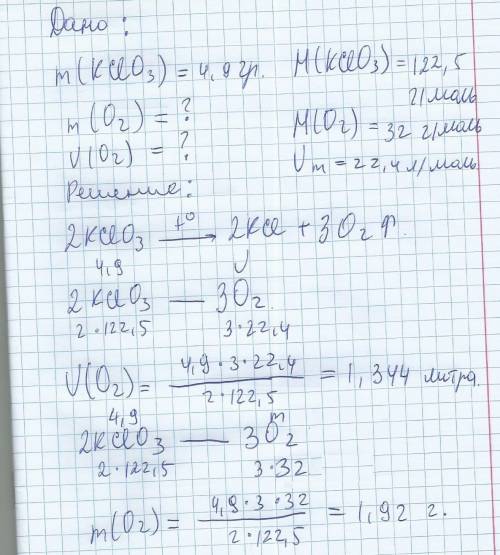 Дано:
m(KClO₃) = 4,9 гр. M(KClO₃) = 122,5
г/моль
m(O₂) = ?
M(O₂) = 32 г/моль
V(O₂) = ?
Vm = 22,4 л/моль
Решение:
2KClO₃ —t°→ 2KCl + 3O₂↑.
4,9 V
2KClO₃ — 3O₂.
2·122,5 3·22,4
V(O₂) = 4,9·3·22,4 / 2·122,5 = 1,344 литра.
4,9 m
2KClO₃ — 3O₂
2·122,5 3·32
m(O₂) = 4,9·3·32 / 2·122,5 = 1,92 г.